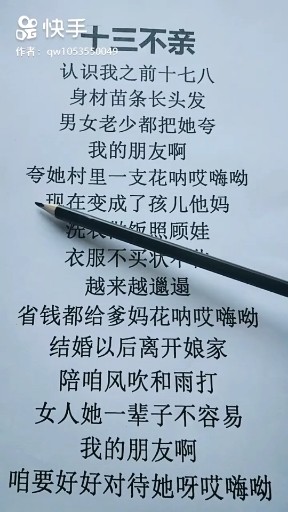 快手
作者：qw1053550049
十三不亲
认识我之前十七八
身材苗条长头发
男女老少都把她夸
我的朋友啊
夸她村里一支花呐哎嗨呦
现在变成了孩儿他妈
洗衣做饭照顾娃
衣服不买状不
越来越邋遢
省钱都给爹妈花呐哎嗨呦
结婚以后离开娘家
陪咱风吹和雨打
女人她一辈子不容易
我的朋友啊
咱要好好对待她呀哎嗨呦